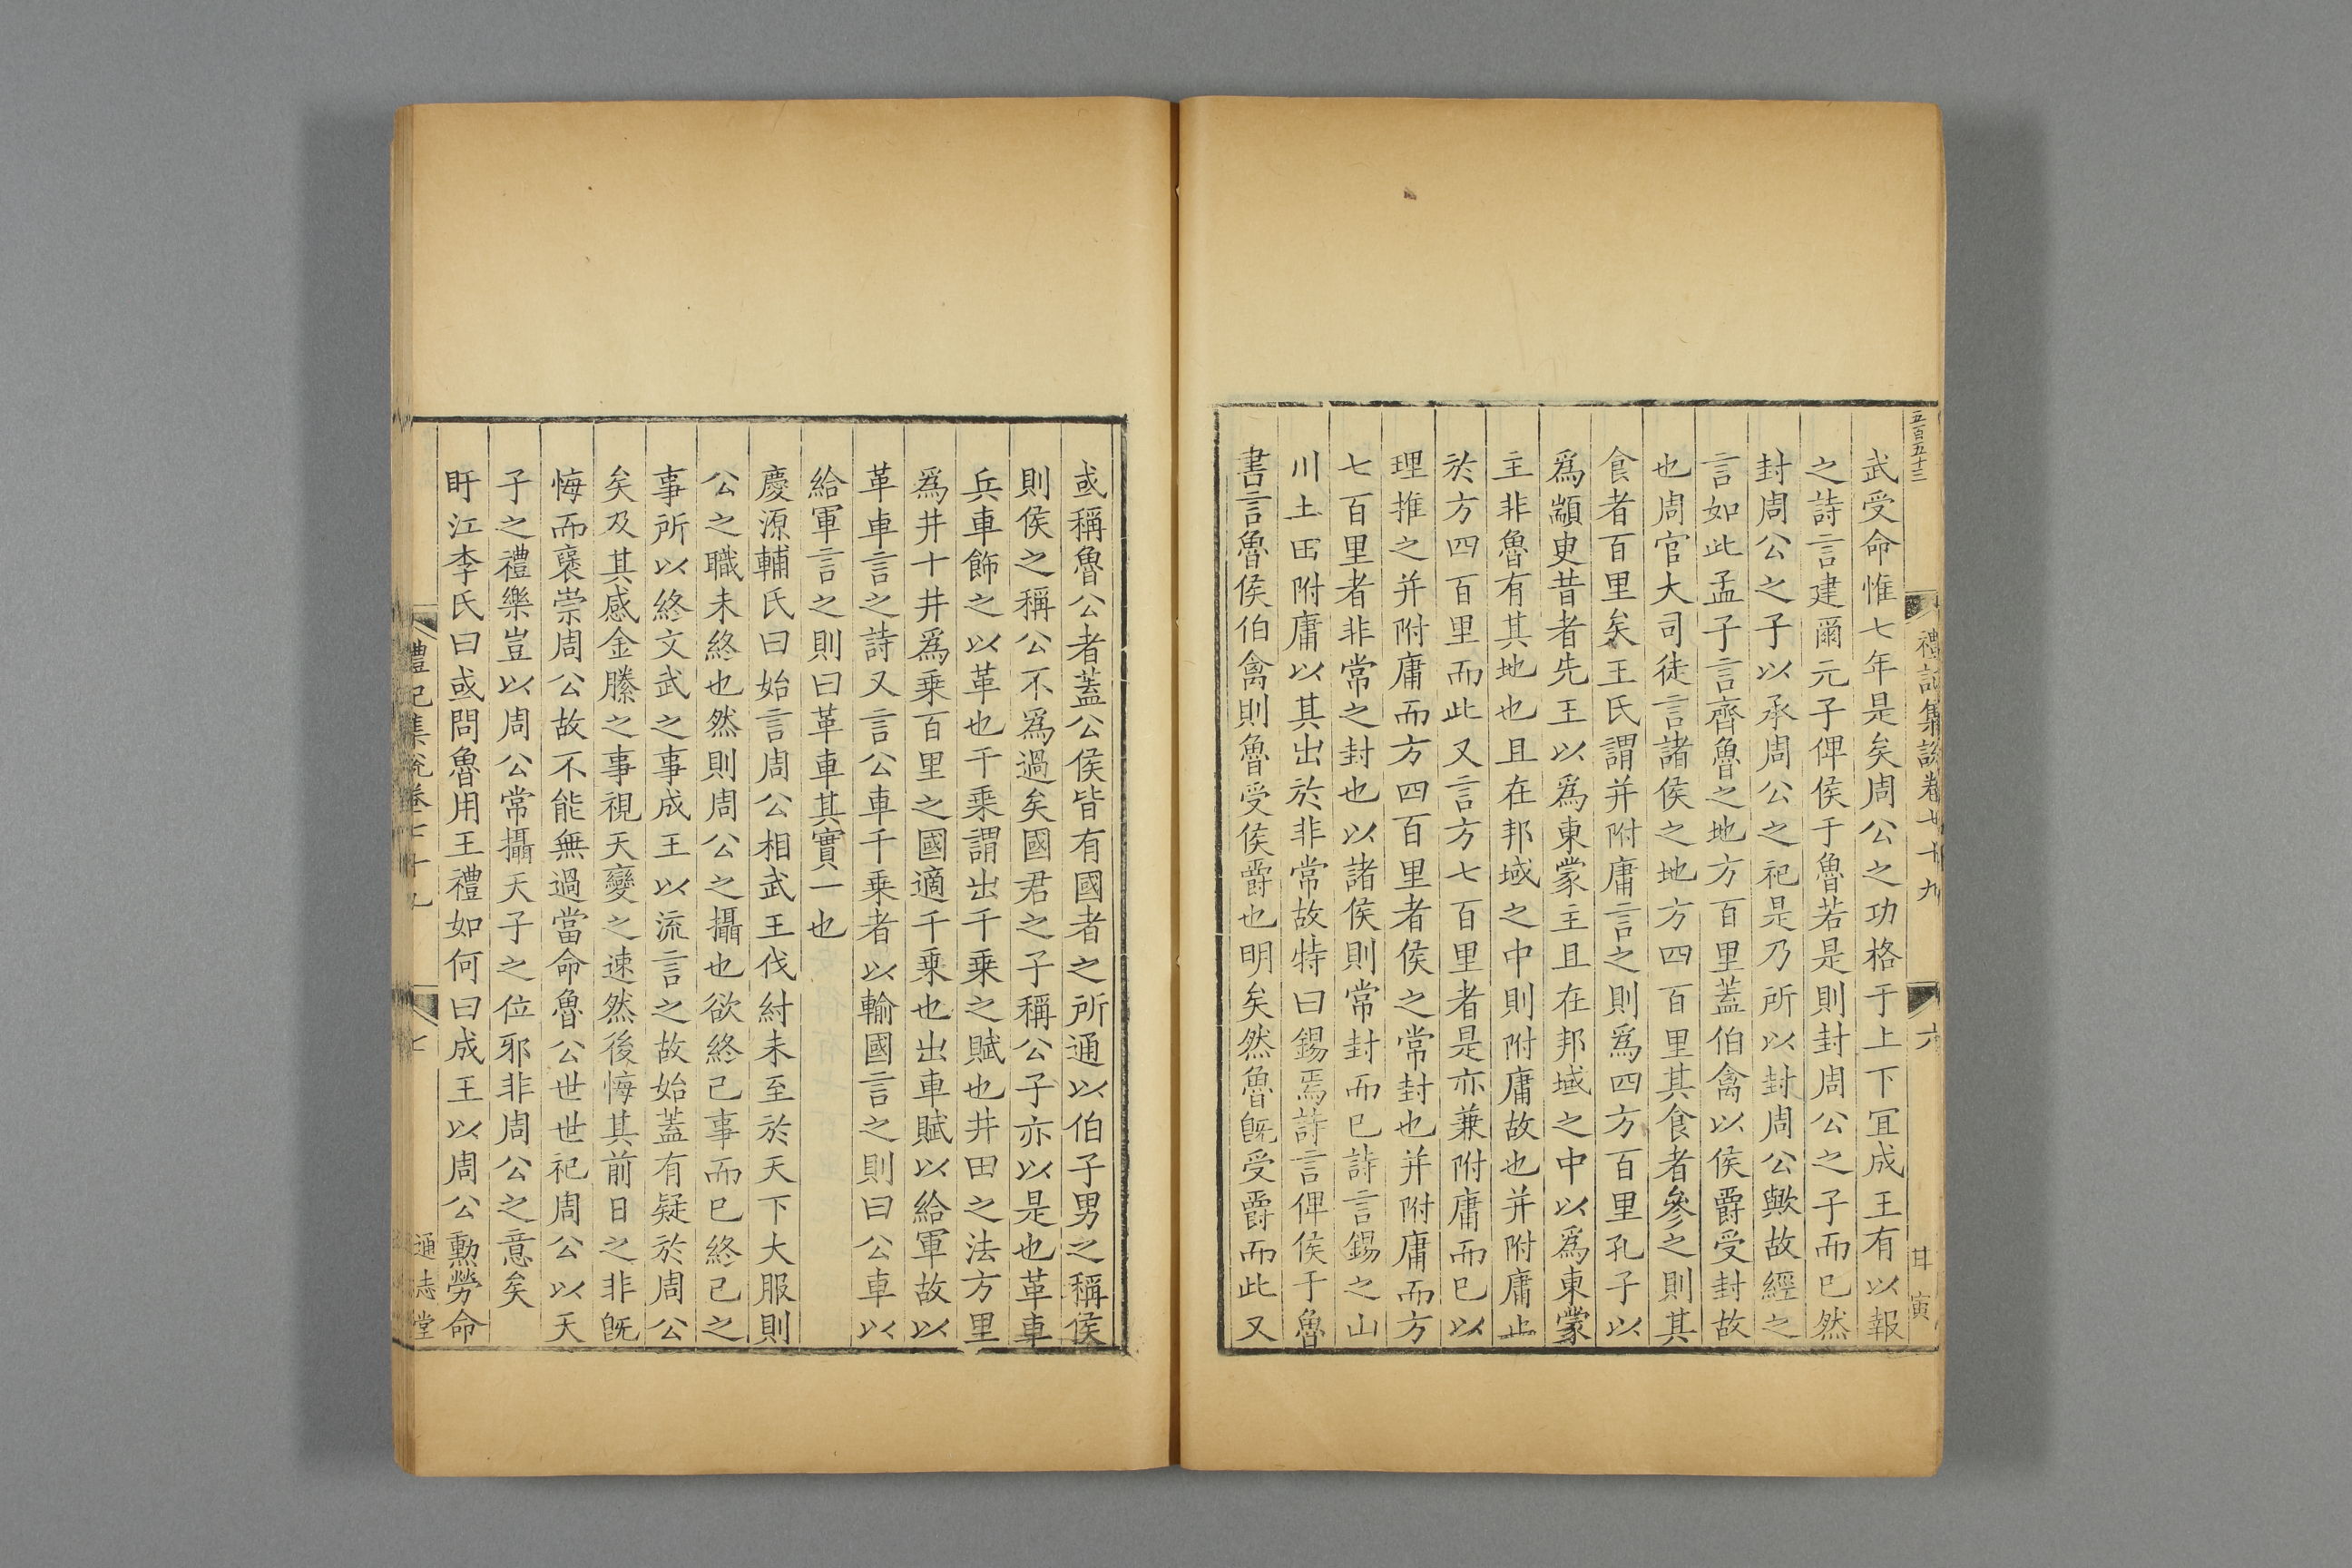 五百五十三
禮記集說卷七十九
六
甘寅
武受命惟七年是矣周公之功格于上下宜成王有以報
之詩言建爾元子俾侯于魯若是則封周公之子而已然
封周公之子以承周公之祀是乃所以封周公歟故經之
言如此孟子言齊魯之地方百里蓋伯禽以侯爵受封故
也周官大司徒言諸侯之地方四百里其食者參之則其
食者百里矣王氏謂并附庸言之則爲四方百里孔子以
爲顓臾昔者先王以爲東蒙主且在邦域之中以爲東蒙
主非魯有其地也且在邦域之中則附庸故也并附庸止
於方四百里而此又言方七百里者是亦兼附庸而已以
理推之并附庸而方四百里者侯之常封也并附庸而方
七百里者非常之封也以諸侯則常封而已詩言錫之山
川土田附庸以其出於非常故特曰錫焉詩言俾侯于魯
書言魯侯伯禽則魯受侯爵也明矣然魯旣受爵而此又
或稱魯公者蓋公侯皆有國者之所通以伯子男之稱侯
則侯之稱公不爲過矣國君之子稱公子亦以是也革車
兵車飾之以革也千乗謂出千乗之賦也井田之法方里
爲井十井爲乗百里之國適千乗也出車賦以給軍故以
革車言之詩又言公車千乗者以輸國言之則曰公車以
給軍言之則曰革車其實一也
慶源輔氏曰始言周公相武王伐紂未至於天下大服則
公之職未終也然則周公之攝也欲終己事而已終己之
事所以終文武之事成王以流言之故始蓋有疑於周公
矣及其感金縢之事視天變之速然後悔其前日之非旣
悔而襃崇周公故不能無過當命魯公世世祀周公以天
子之禮樂豈以周公常攝天子之位邪非周公之意矣
盱江李氏曰或問魯用王禮如何曰成王以周公勲勞命
禮記集說卷七十九
七
通志堂